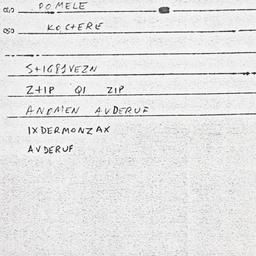 DO MELE
KO CTERE
Z+IP QI ZIP
ANDMEN AVDERUF
IXDERMONZAX
AVDERUF